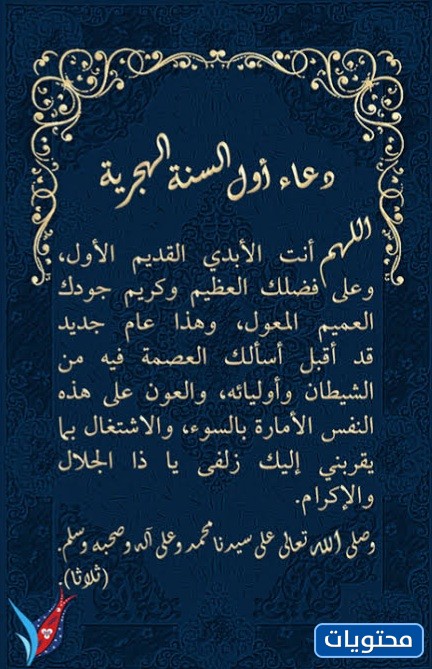 دعاء أول السنة الهجرية
اللهم أنت الأبدي القديم الأول،
وعلى فضلك العظيم وكريم جودك
العميم المعول، وهذا عام جديد
قد أقبل أسألك العصمة فيه من
الشيطان وأوليائه، والعون على هذه
النفس الأمارة بالسوء، والاشتغال بما
يقربني إليك زلفى يا ذا الجلال
والإكرام.
وصلى الله تعالى على سيدنا محمد وعلى آله وصحبه وسلم.
(ثلاثا).
محتويات